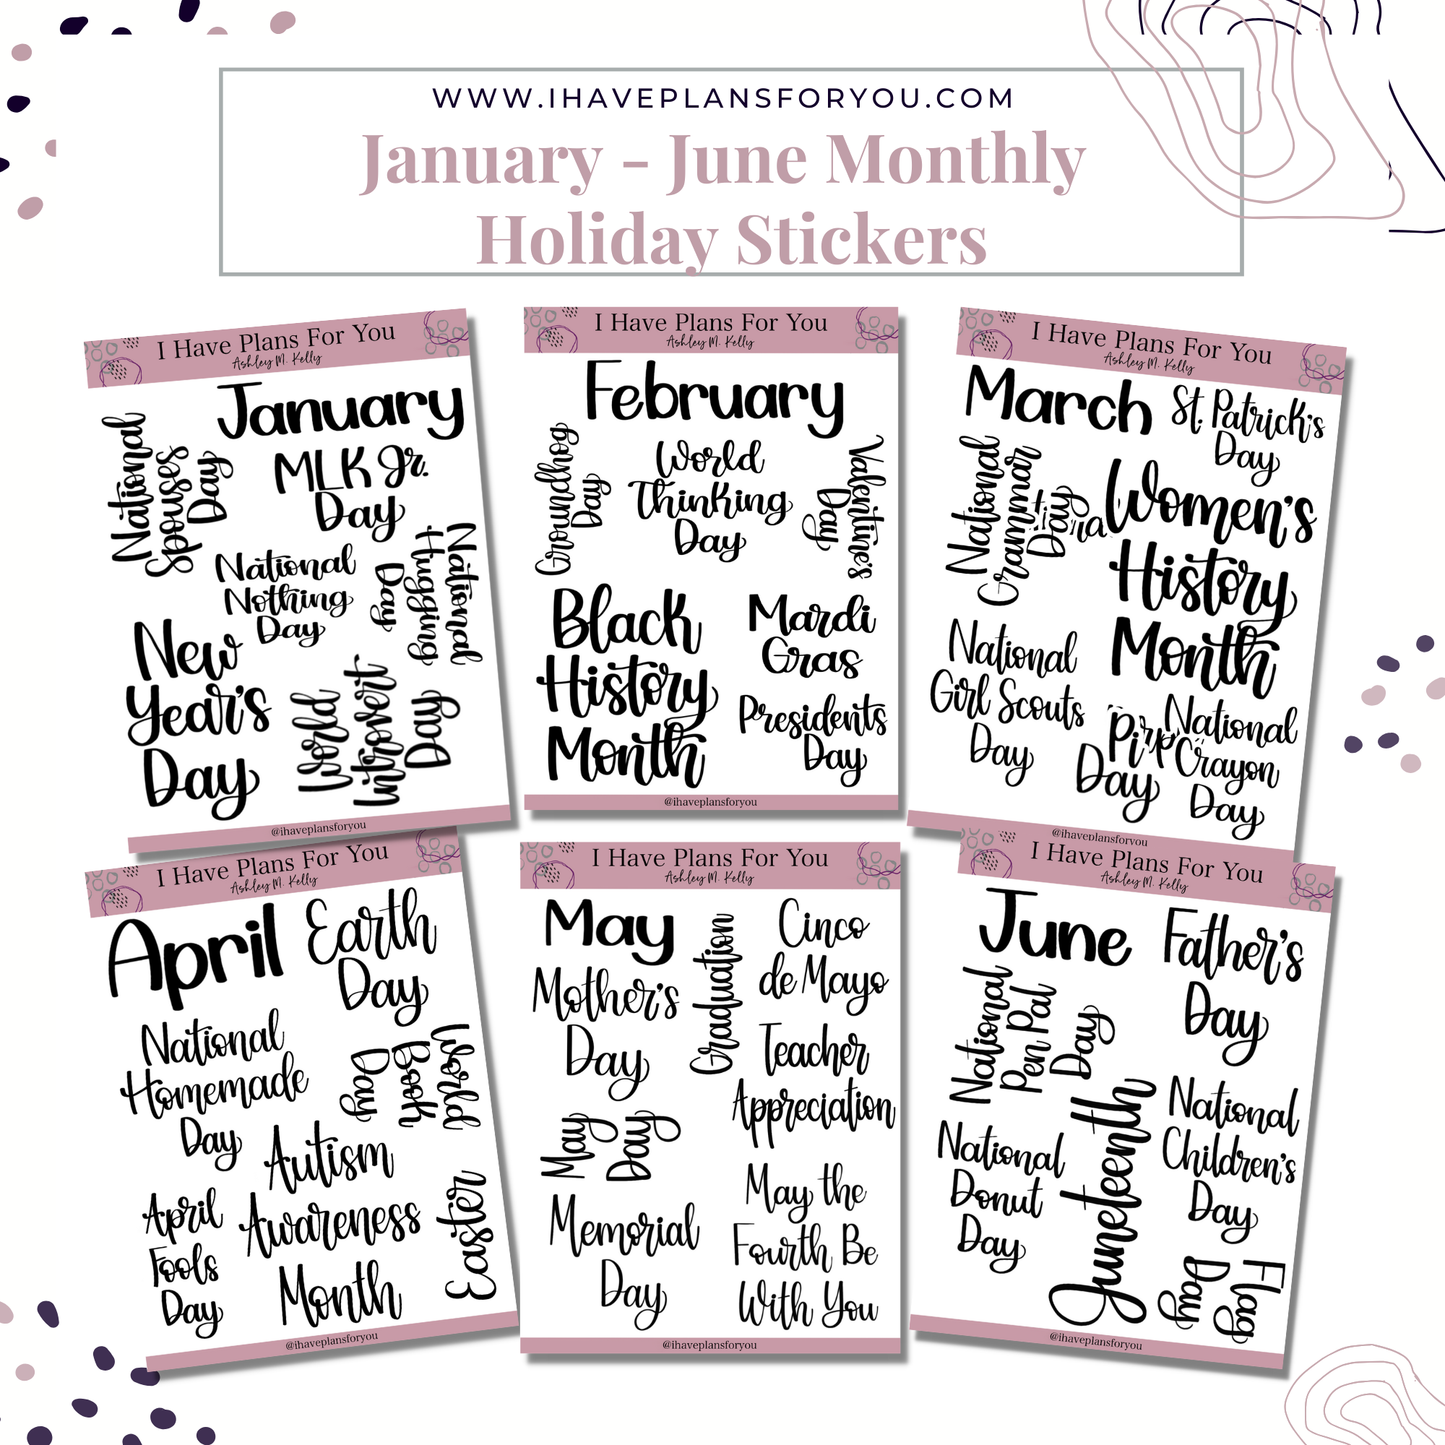 WWW.IHAVEPLANSFORYOU.COM
January - June Monthly
Holiday Stickers
I Have Plans For You
Ashley M. Kelly
January
National
Spouses
Day
MLK Jr.
Day
National
Nothing
Day
National
Hugging
Day
New
Year's
Day
World
Introvert
Day
@ihaveplansforyou
I Have Plans For You
Ashley M. Kelly
February
Groundhog
Day
World
Thinking
Day
Valentine's
Day
Black
History
Month
Mardi
Gras
Presidents
Day
@ihaveplansforyou
I Have Plans For You
Ashley M. Kelly
March
St. Patrick's
Day
National
Grammar
Day
Women's
History
Month
National
Girl Scouts
Day
Day
National
Crayon
Day
@ihaveplansforyou
I Have Plans For You
Ashley M. Kelly
April
Earth
Day
National
Homemade
Day
World
Book
Day
Autism
Awareness
Month
April
Fools
Day
Easter
@ihaveplansforyou
I Have Plans For You
Ashley M. Kelly
May
Graduation
Cinco
de Mayo
Mother's
Day
Teacher
Appreciation
May
Day
Memorial
Day
May the
Fourth Be
With You
@ihaveplansforyou
I Have Plans For You
Ashley M. Kelly
June
Father's
Day
National
Pen Pal
Day
Juneteenth
National
Children's
Day
National
Donut
Day
Flag
Day
@ihaveplansforyou